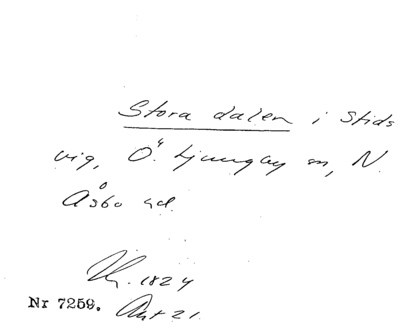 Stora dalen i Stids
vig, Ö. Ljungby sn, N.
Åsbo hd.
1824
Nr 7259. Akt 21.